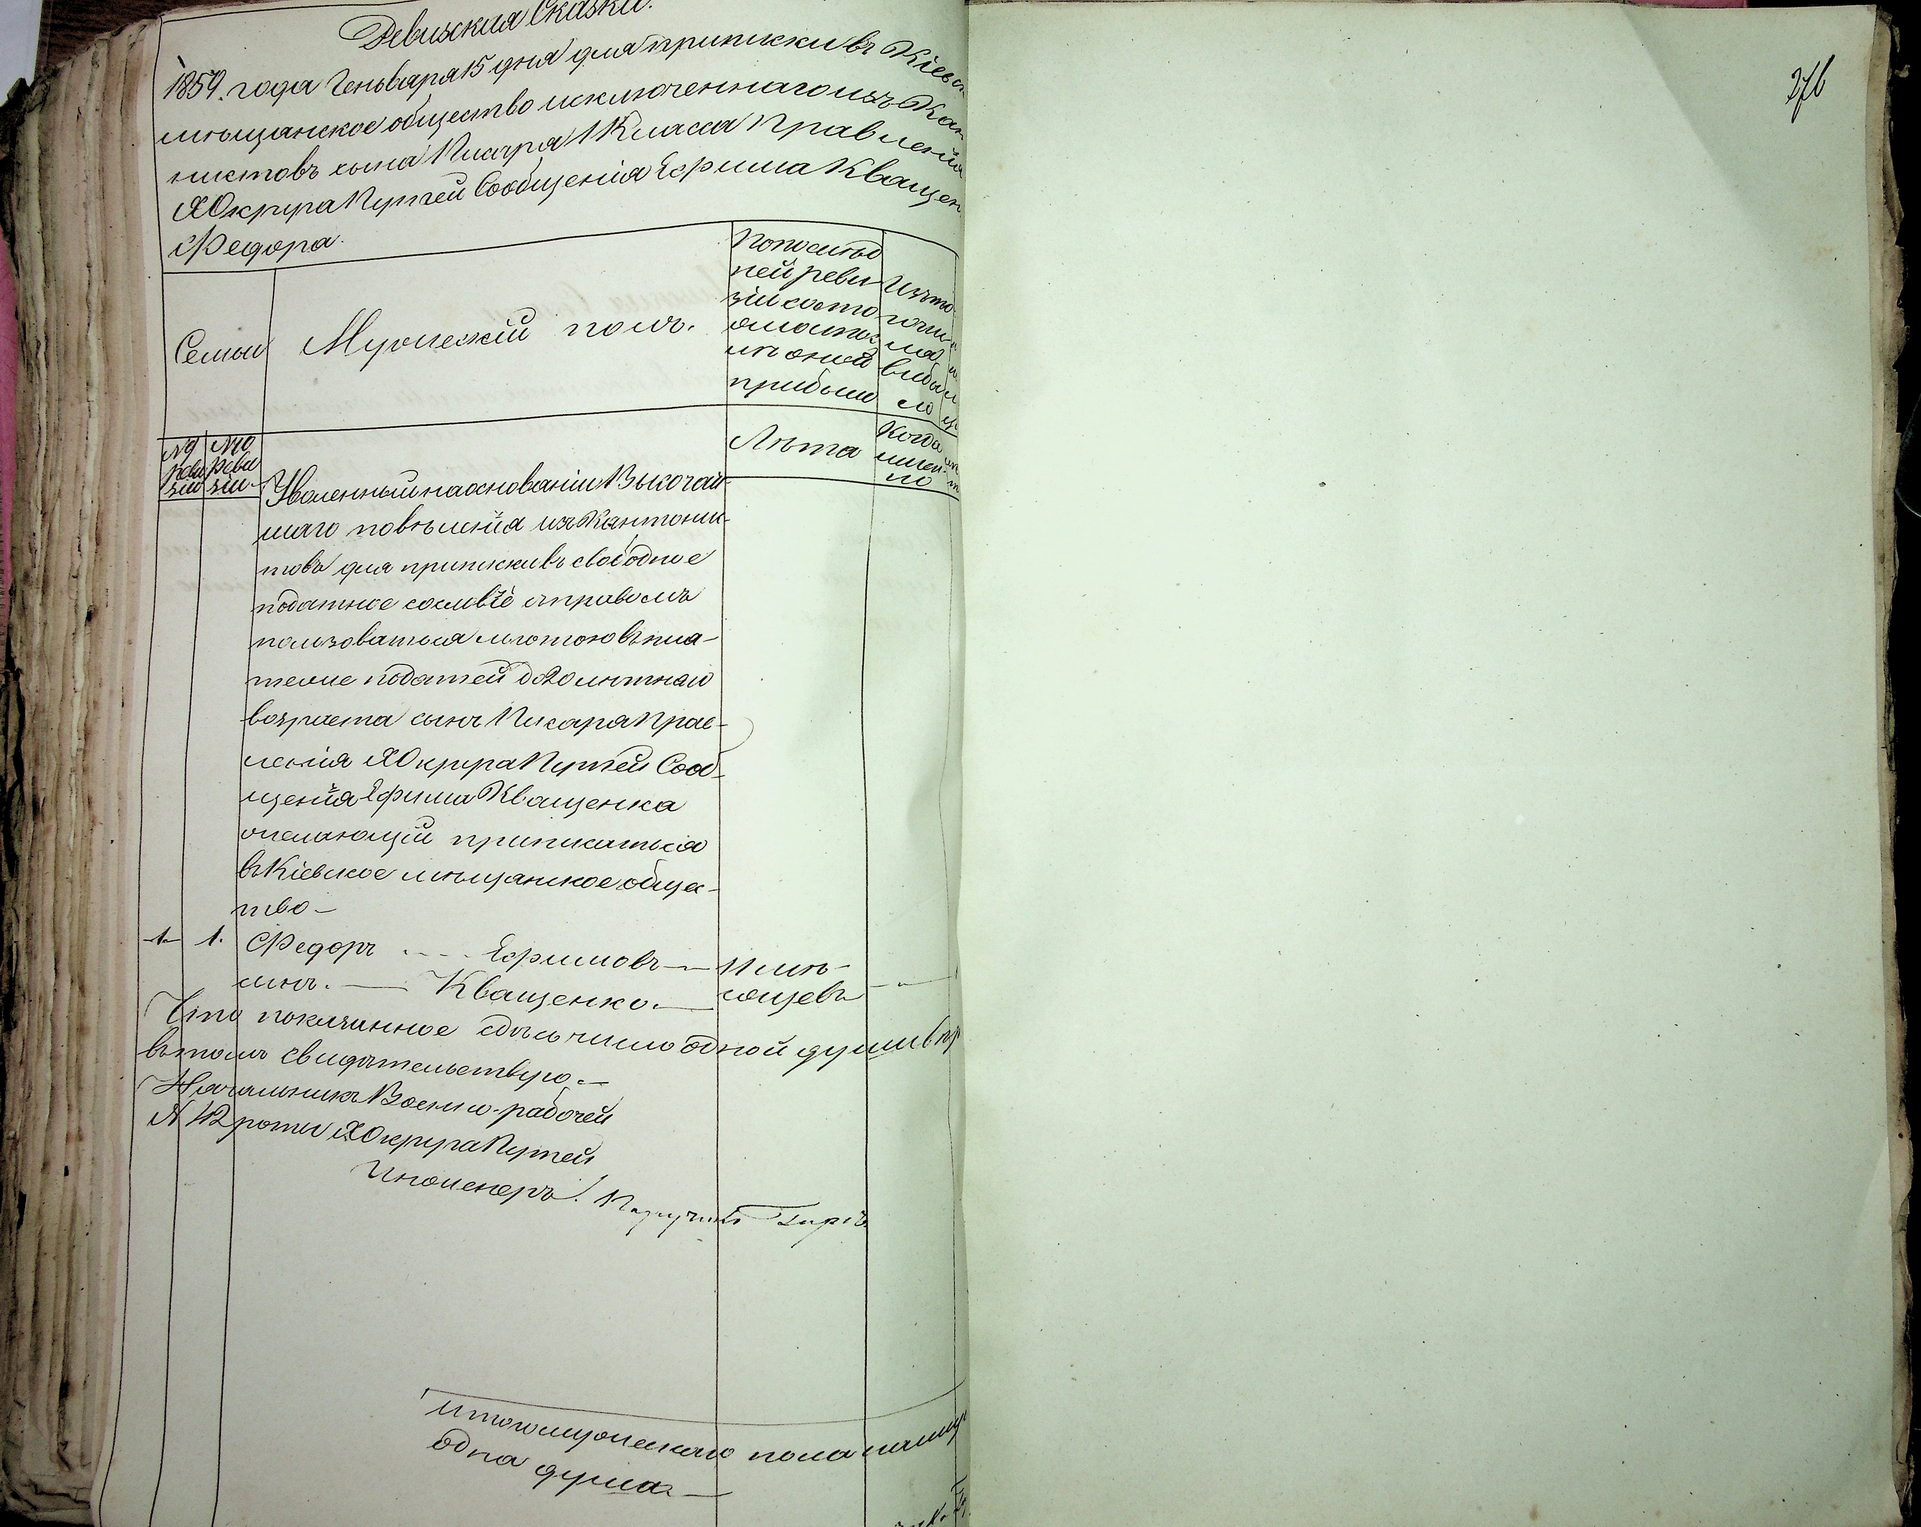 Ревизская Сказка.
1859. года Геньваря 15 дня для приписки въ Кіевск
мѣщанское общество исключеннаго изъ Кан
нистовъ сына Писаря 1 Класса Правленія
X Округа Путей Сообщенія Ефима Кващен
Федора.
Семьи
Мужескій полъ.
По послѣд
ней реви
зіи состо
яло и пос
лѣ оной
прибыло
Изъ то
го чи
сла
выбы
ло
№ 9
Реви
зіи
№ 10
Реви
зіи
Лѣта
Когда
имен
но
Уволенный на основаніи Высочай-
шаго повѣленія изъ Кантони-
товъ для приписки въ свободное
податное сословіе съ правомъ
пользоваться льготою въ пла-
теже податей до 20 лѣтняго
возраста сынъ Писаря Прав-
ленія X Округа Путей Сооб-
щенія Ефима Кващенка
желающій приписаться
въ Кіевское мѣщанское общес-
тво -
1. 1. Федоръ ---- Ефимовъ — 11 мѣ-
сынъ. — Кващенко. — сяцевъ — „ —
Что показанное здѣсь число одной души вѣр
въ томъ свидѣтельствую. —
Начальникъ Военно-рабочей
№ 42 роты X Округа Путей
Инженеръ Поручикъ
Итого мужескаго пола налицо
одна душа —
276